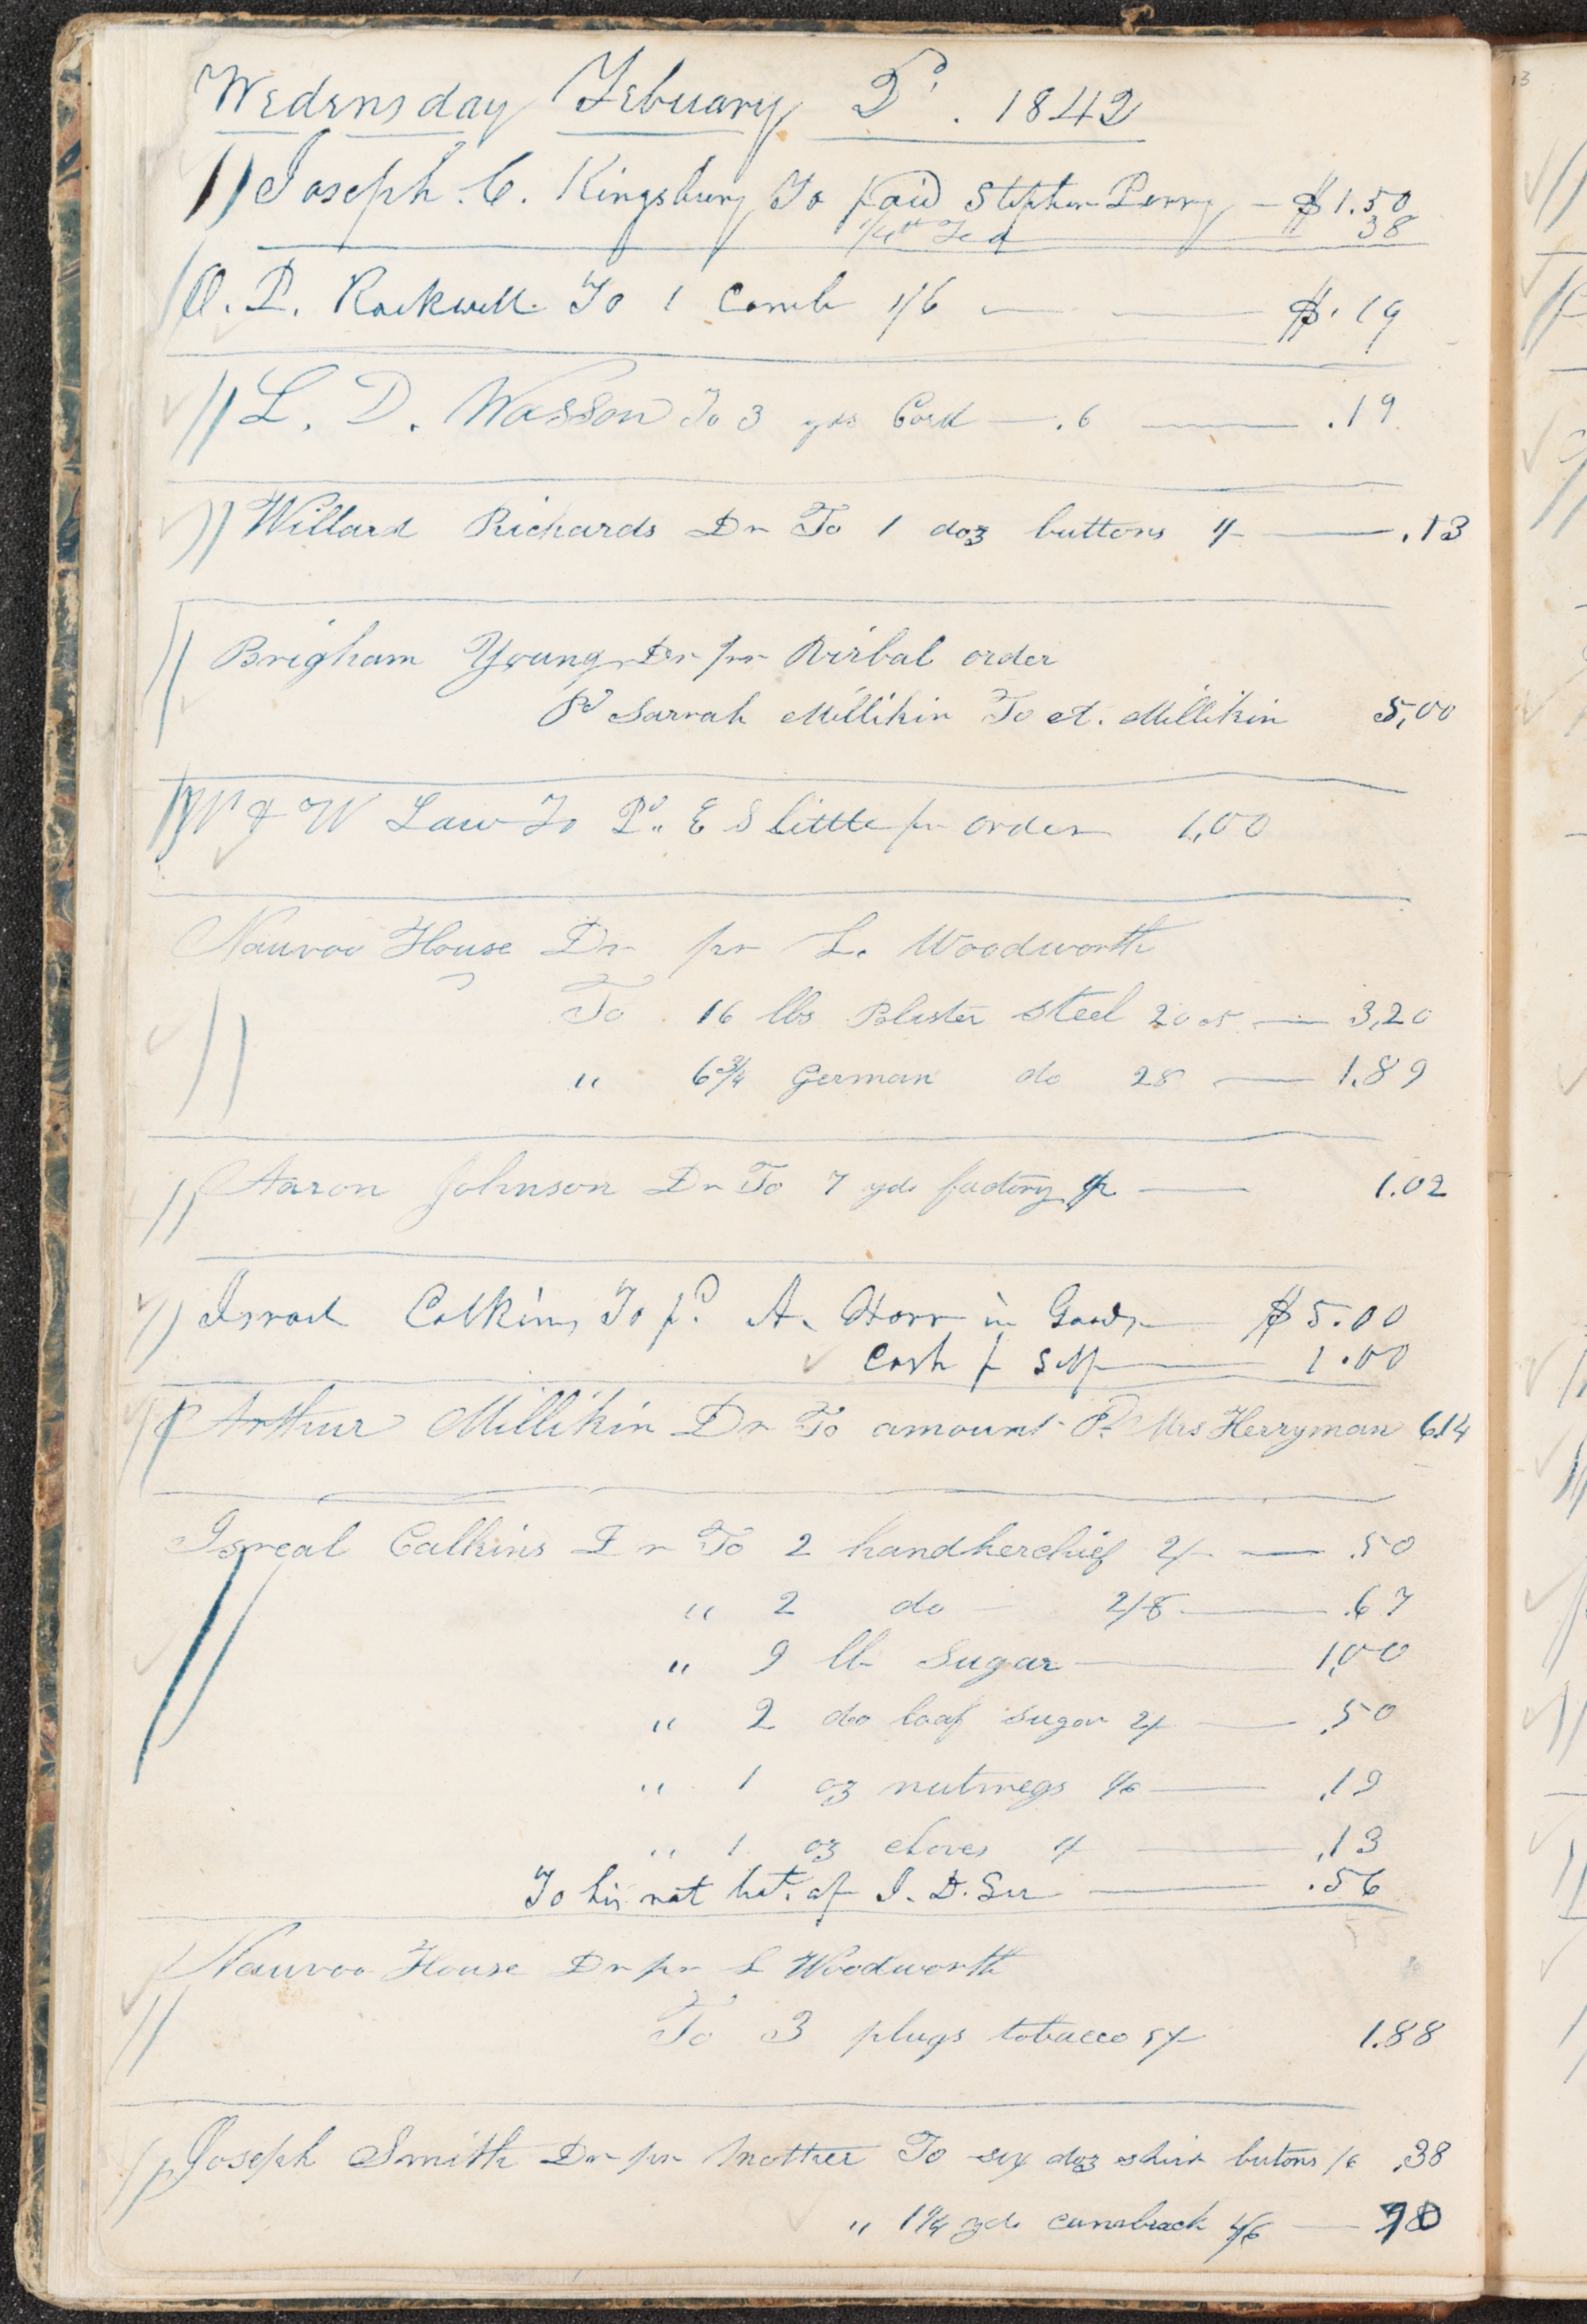 Wedensday Febuary 2d. 1842
Joseph C. Kingsbury To paid Stephen Perry — $1.50
1/4 th Tea 38
O. P. Rockwell To 1 Comb 1/6 — $.19
L. D. Wasson To 3 yds Cord — .6 — .19
Willard Richards Dr To 1 doz buttons 1/– — .13
Brigham Young Dr pr Virbal order
Pd Sarrah Millikin To A. Millikin 5,00
W & W Law To Pd. E S little pr order 1,00
Nauvoo House Dr pr L. Woodworth
To 16 lbs Blister Steel 20 cts — 3,20
" 6 3/4 German do 28 — 1.89
Aaron Johnson Dr To 7 yds factory — 1.02
Israel Calkins To pd. A. Horr in Goods — $5.00
Cash pr Self — 1.00
Arthur Millikin Dr To amount Pd. Mrs Herryman 6.14
Isreal Calkins Dr To 2 handkerchief 2/– — .50
" 2 do – 2/8 — .67
" 9 lb Sugar — 1,00
" 2 do loaf sugar 2/ — ,50
" 1 oz nutmegs 1/6 — ,19
" 1 oz cloves 1/ — ,13
To his — .56
Nauvoo House Dr pr L Woodworth
To 3 plugs tobacco 5/– 1.88
Joseph Smith Dr pr Mother To six doz shirt butons /6 ,38
" 1 1/4 yds cambrack 4/6 — 70
13